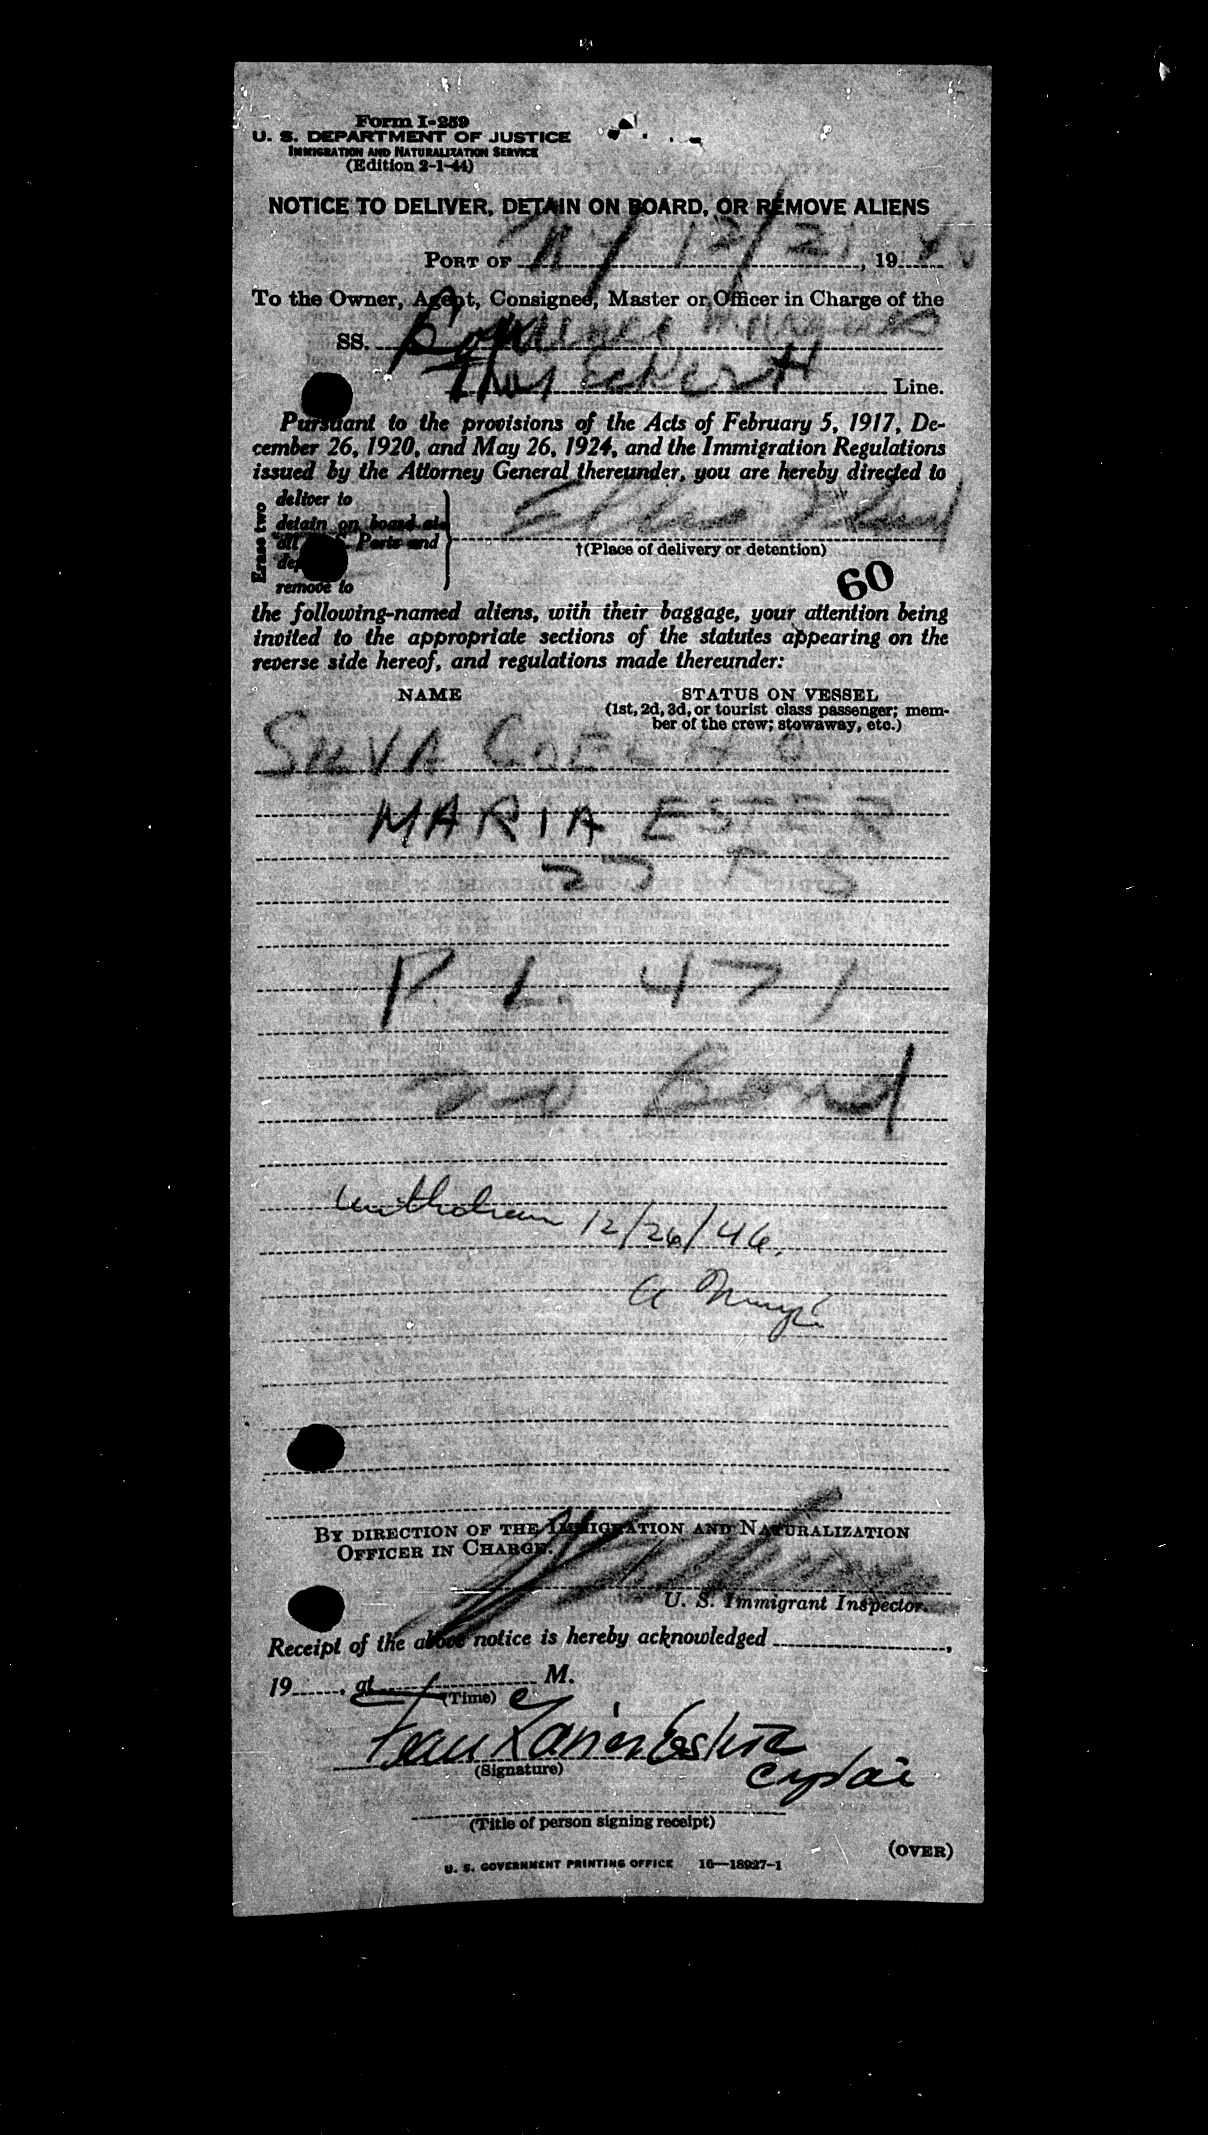 Form I-259
U. S. DEPARTMENT OF JUSTICE
IMMIGRATION AND NATURALIZATION SERVICE
(Edition 2-1-44)
NOTICE TO DELIVER, DETAIN ON BOARD, OR REMOVE ALIENS
PORT OF NY 12/21, 1946
To the Owner, Agent, Consignee, Master or Officer in Charge of the
SS.
Line.
Pursuant to the provisions of the Acts of February 5, 1917, De-
cember 26, 1920, and May 26, 1924, and the Immigration Regulations
issued by the Attorney General thereunder, you are hereby directed to
Erase two
deliver to
detain on board at
all Ports and
remove to
Ellis Island
†(Place of delivery or detention)
60
the following-named aliens, with their baggage, your attention being
invited to the appropriate sections of the statutes appearing on the
reverse side hereof, and regulations made thereunder:
NAME STATUS ON VESSEL
(1st, 2d, 3d, or tourist class passenger; mem-
ber of the crew; stowaway, etc.)
SILVA COELHO
MARIA ESTER
27 F S
P. L. 471
no Bond
Withdrawn 12/26/46.
BY DIRECTION OF THE IMMIGRATION AND NATURALIZATION
OFFICER IN CHARGE.
U. S. Immigrant Inspector.
Receipt of the above notice is hereby acknowledged ,
19 , at M.
(Time)
(Signature)
(Title of person signing receipt)
(OVER)
U. S. GOVERNMENT PRINTING OFFICE 16—18927-1